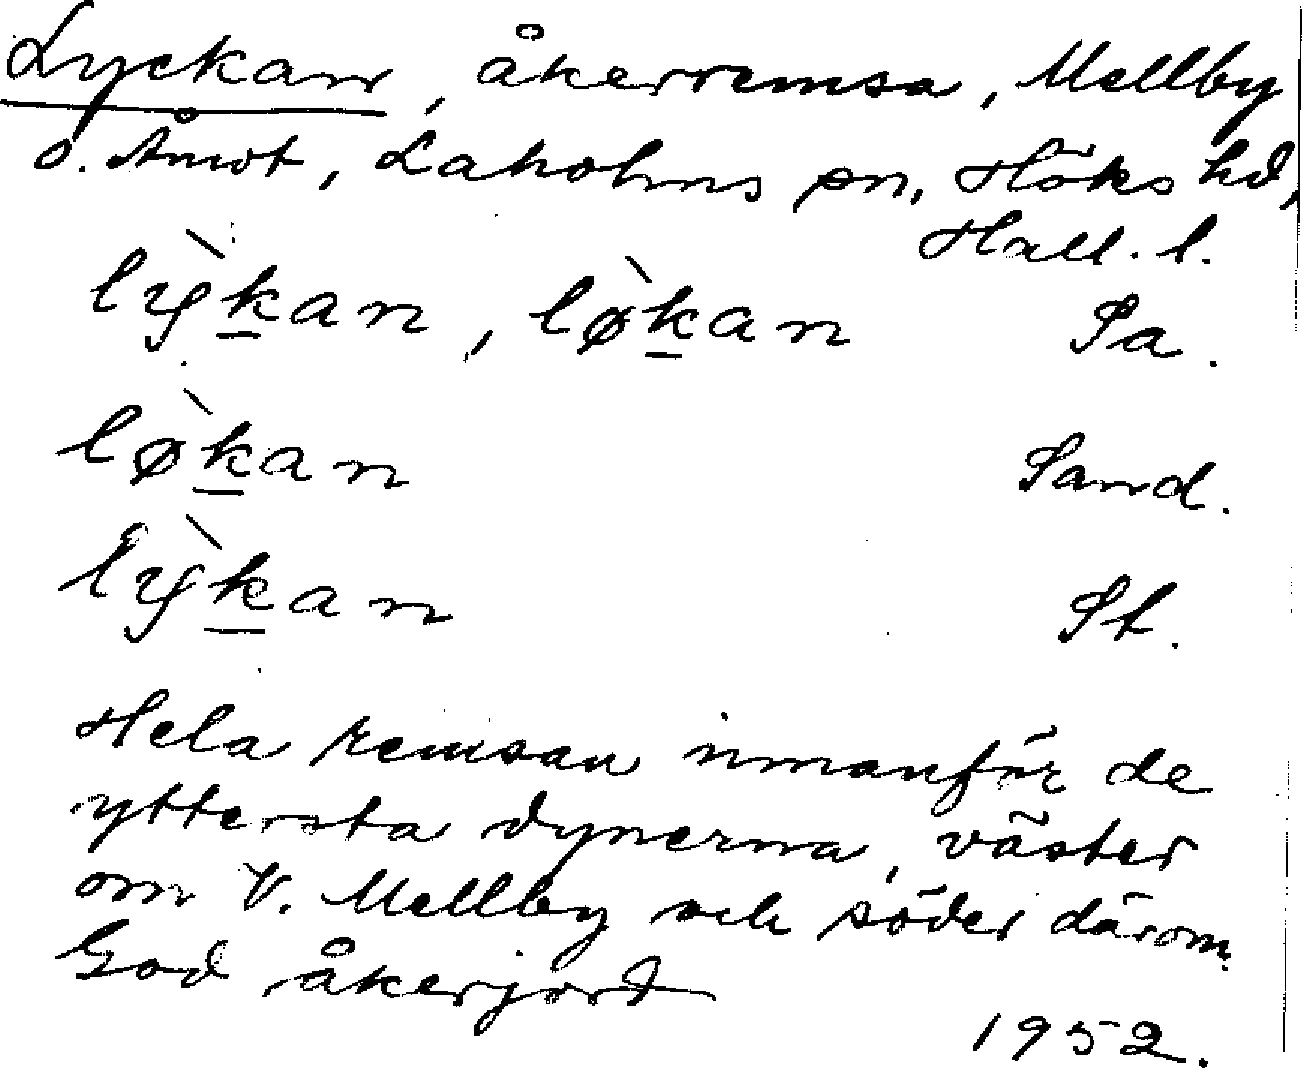 Lyckan, åkerremsa, Mellby
o. Åmot, Laholms sn, Höks hd,
Hall. l.
lỳk̲an, lø̀k̲an Sa.
lø̀k̲an Sand.
lỳk̲an St.
Hela remsan innanför de
yttersta dynerna, väster
om V. Mellby och söder därom.
God åkerjord
1952.